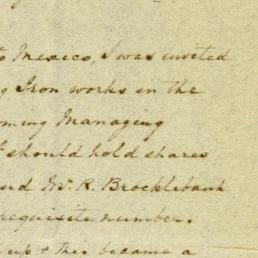 to Mexico, I was invited
g Iron works in the
oming Managing
I should hold shares
and Mr. R. Brocklebank
requisite number.
up & this became a